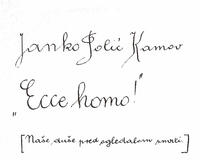 Janko Polić Kamov
„Ecce homo!"
[Naše duše pred ogledalom smrti.]